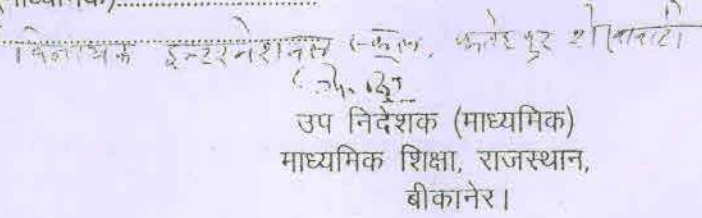 (माध्यमिक)..............................
विनायक इन्टरनेशनल स्कूल, फतेहपुर शेखावाटी
उप निदेशक (माध्यमिक)
माध्यमिक शिक्षा, राजस्थान,
बीकानेर।